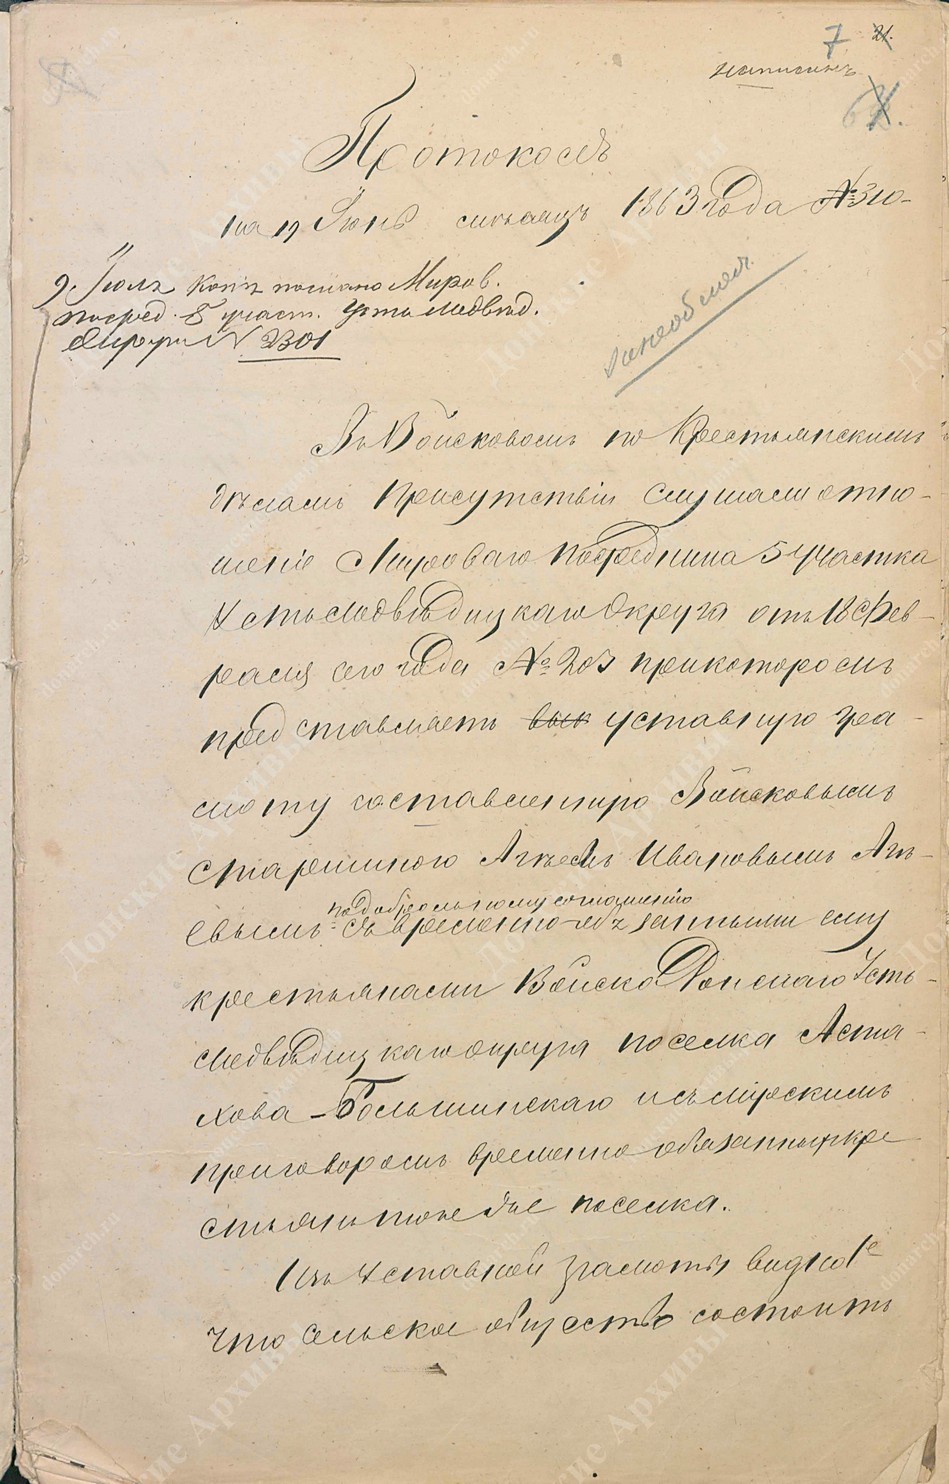 7 21.
написанъ
63.
Протоколъ
на 19 Іюнь мѣсяцъ 1863 года № 310-
9. Іюля Копія послана Миров.
посред. 5 участ. Усть Медвѣд.
Округа № 2301
Въ Войсковомъ по Крестьянскимъ
дѣламъ Присутствіи Слушали отно-
шеніе Мироваго посредника 5 участка
Усть Медвѣдицкаго Округа отъ 18 Фев-
раля сего года № 207 при которомъ
представляетъ вык уставную гра-
моту составленную Войсковымъ
старшиною Агѣемъ Ивановымъ Агѣ-
подобровольному соглашенію
евымъ съ временно-обязанными ему
крестьянами Войска Донскаго Усть-
медвѣдицкаго округа поселка Аста-
хова-Большинскаго и съ мірскимъ
приговоромъ временно обязанныхъ кре
стьянъ того же поселка.
Изъ Уставной грамоты видно 1е
что сельское общество состоитъ